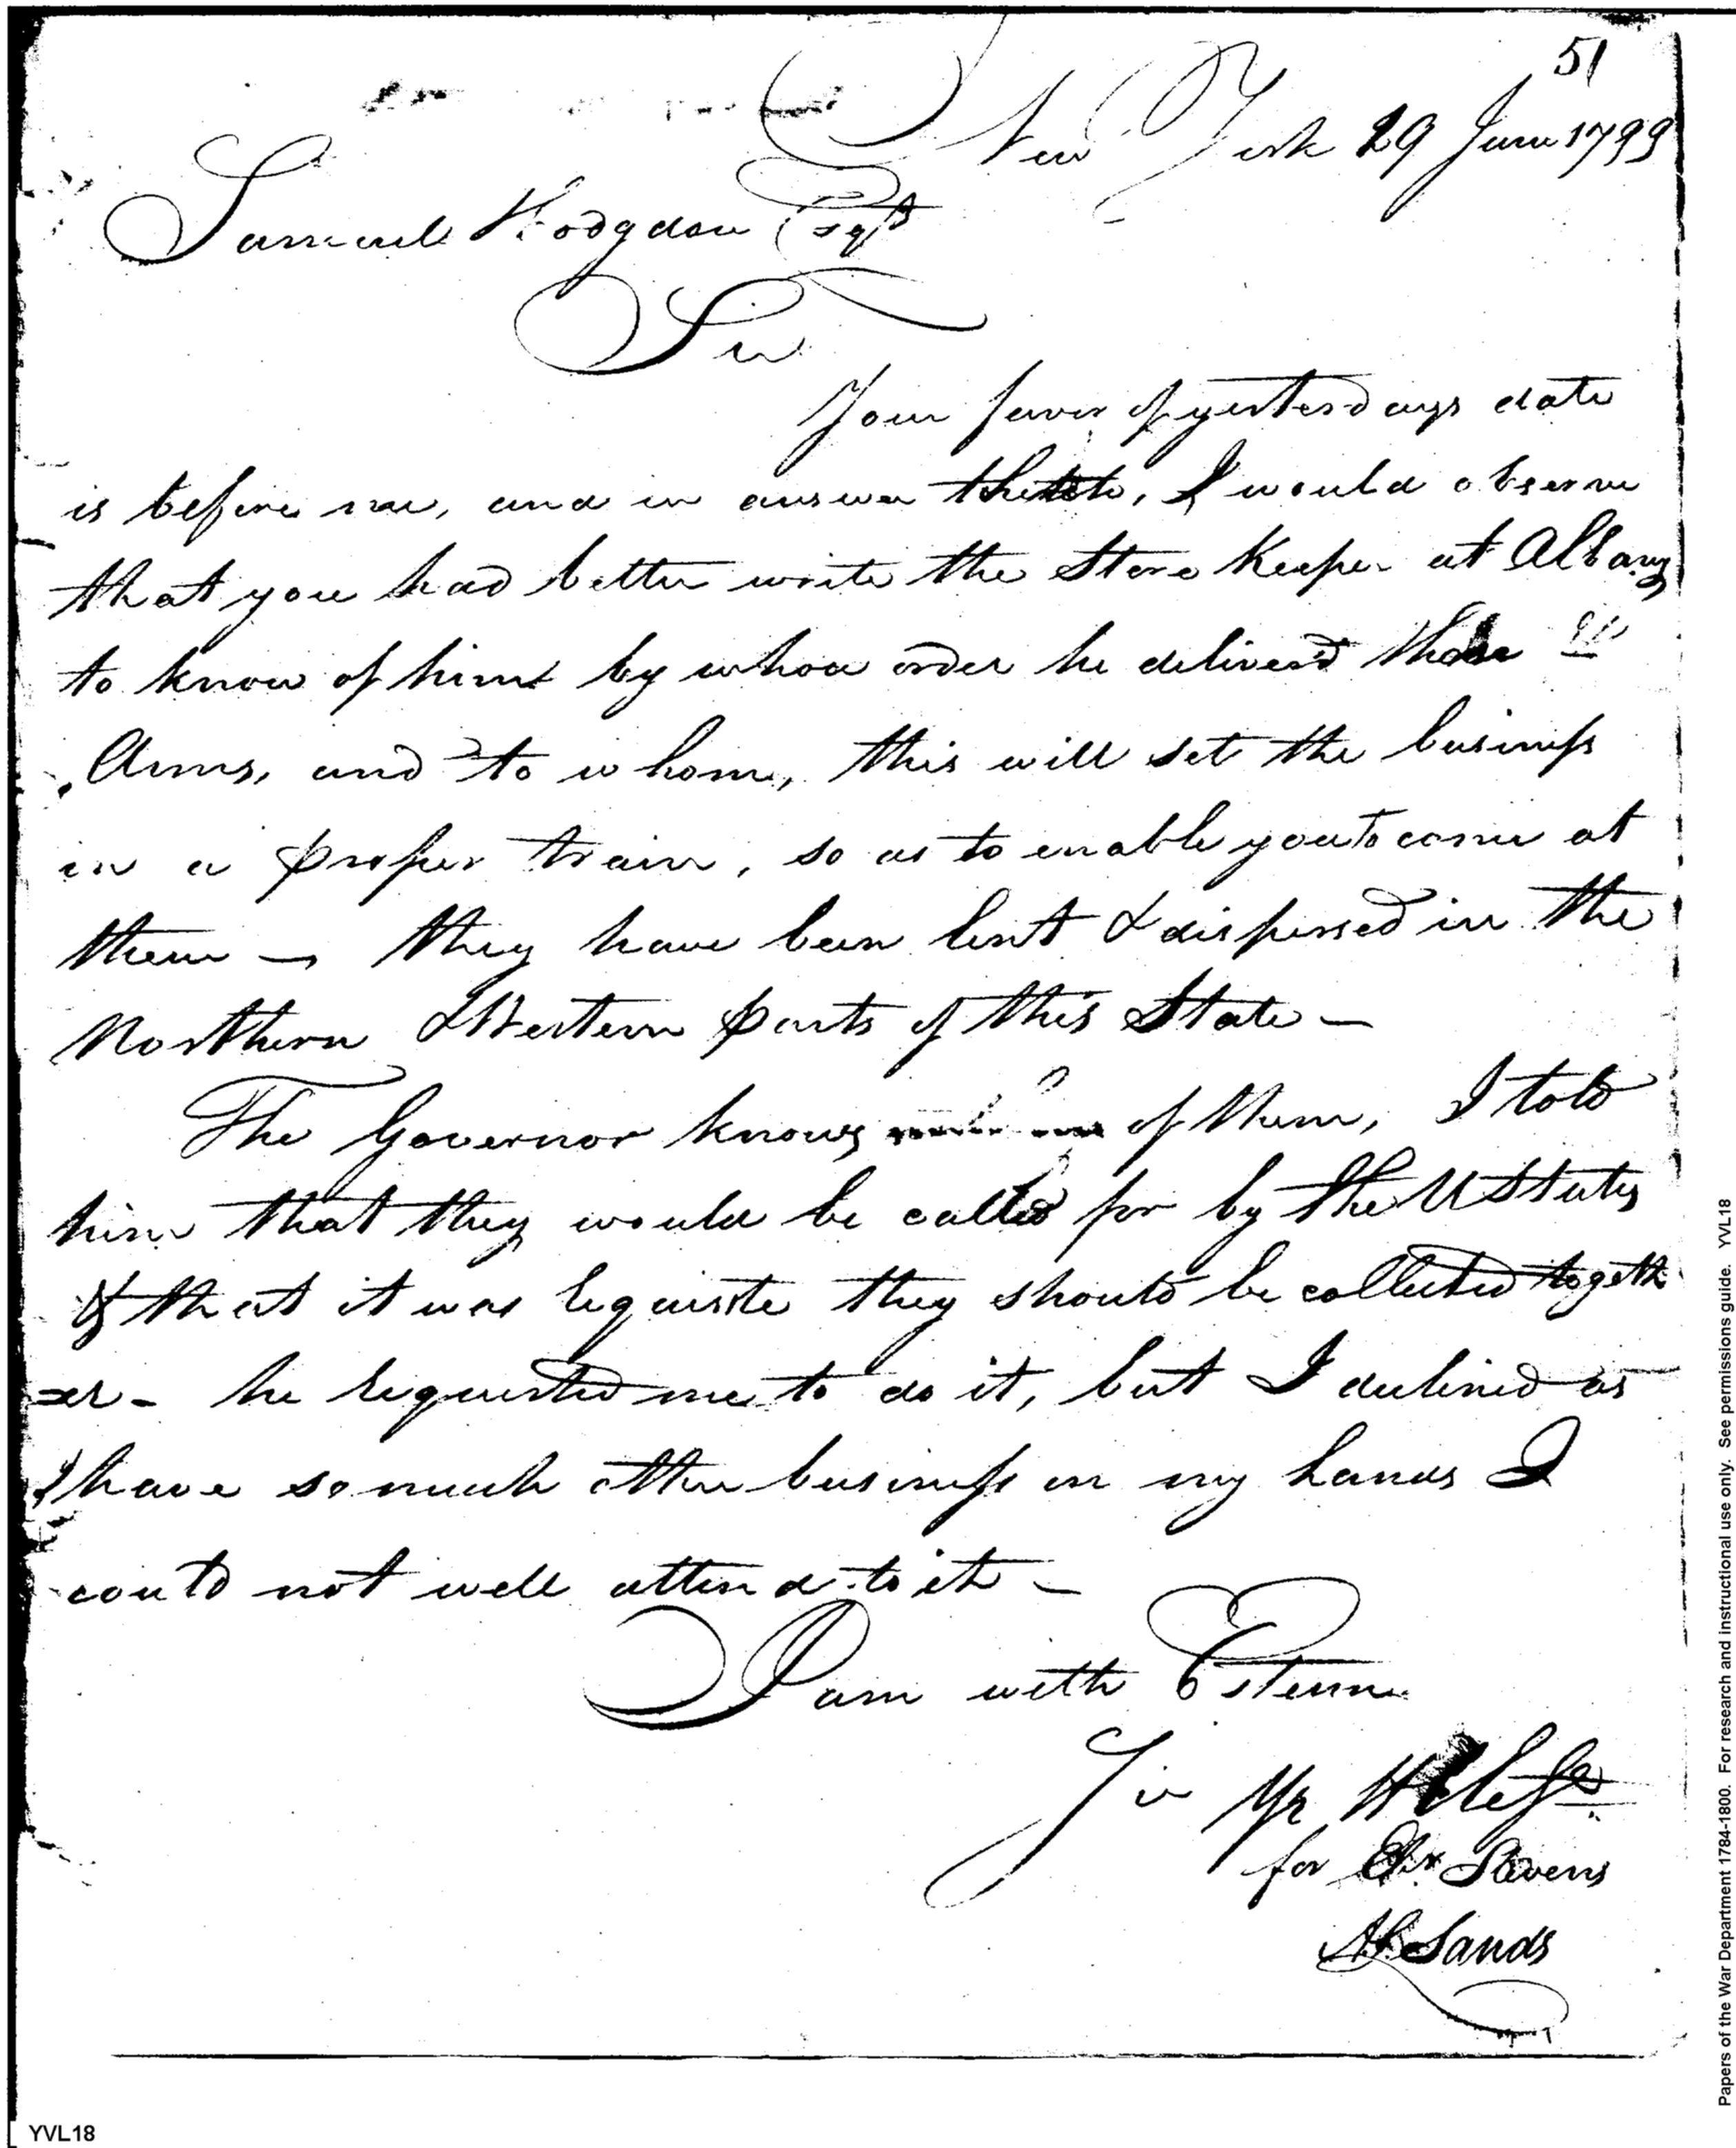 51
New York 29 June 1799
Samuel Hodgdon Esqr
Sir
Your favor of yesterdays date
is before me, and in answer thereto, I would observe
that you had better write the Store Keeper at Albany
to know of him by whoa order he deliverd those
Arms, and to whom, this will set the business
in a proper train, so as to enable you to come at
them — they have been lent & dispersed in the
Northern & Western parts of this State —
The Governor knows of them, I told
him that they would be called for by the U States
& that it was requisite they should be collected togeth
er - he requested me to do it, but I declined as
I have so much other business on my hands I
could not well attend to it —
I am with Esteem
Sir Yr
for Stevens
Sands
YVL18
Papers of the War Department 1784-1800. For research and instructional use only. See permissions guide. YVL18